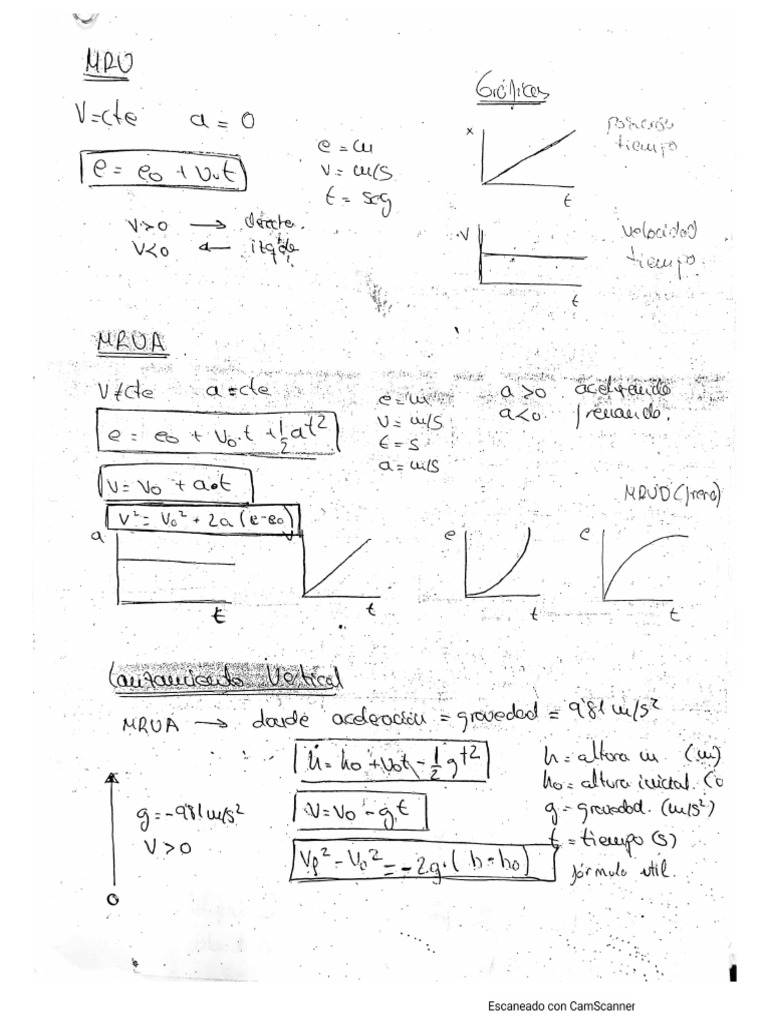 MRU
V=cte a=0
e = e₀ + v.t
e = m
v = m/s
t = seg
V>0 → dercha.
V<0 ← izqda
Gráficas
x
t
posición
tiempo
V
t
velocidad
tiempo.
MRUA
V≠cte a=cte
e = e₀ + v₀.t + 1/2 at²
v = v₀ + a.t
v² = v₀² + 2a (e-e₀)
e=m
v=m/s
t=s
a=m/s
a>0 acelerando
a<0 frenando.
MRUD (freno)
a
t
v
t
e
t
e
t
Lanzamiento Vertical
MRUA → donde aceleración = gravedad = 9'81 m/s²
h = h₀ + v₀t - 1/2 gt²
v = v₀ - g.t
Vf² - V₀² = -2g.(h-h₀)
h = altura m (m)
h₀ = altura inicial. (
g = gravedad. (m/s²)
t = tiempo (s)
fórmula útil.
g = -9'81 m/s²
V>0
0
Escaneado con CamScanner